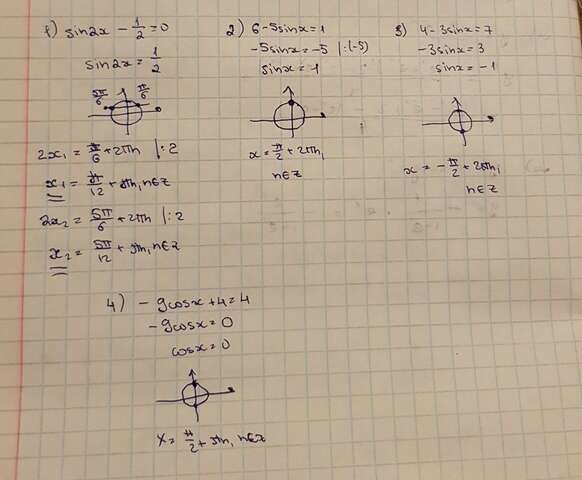 1) sin2x - 1/2 = 0
sin2x = 1/2
5π/6 π/6
2x₁ = π/6 + 2πn |:2
x₁ = π/12 + πn, n∈z
2x₂ = 5π/6 + 2πn |:2
x₂ = 5π/12 + πn, n∈z
2) 6-5sinx = 1
-5sinx = -5 |:(-5)
sinx = 1
x = π/2 + 2πn,
n∈z
3) 4-3sinx = 7
-3sinx = 3
sinx = -1
x = -π/2 + 2πn,
n∈z
4) -9cosx + 4 = 4
-9cosx = 0
cosx = 0
x = π/2 + πn, n∈z